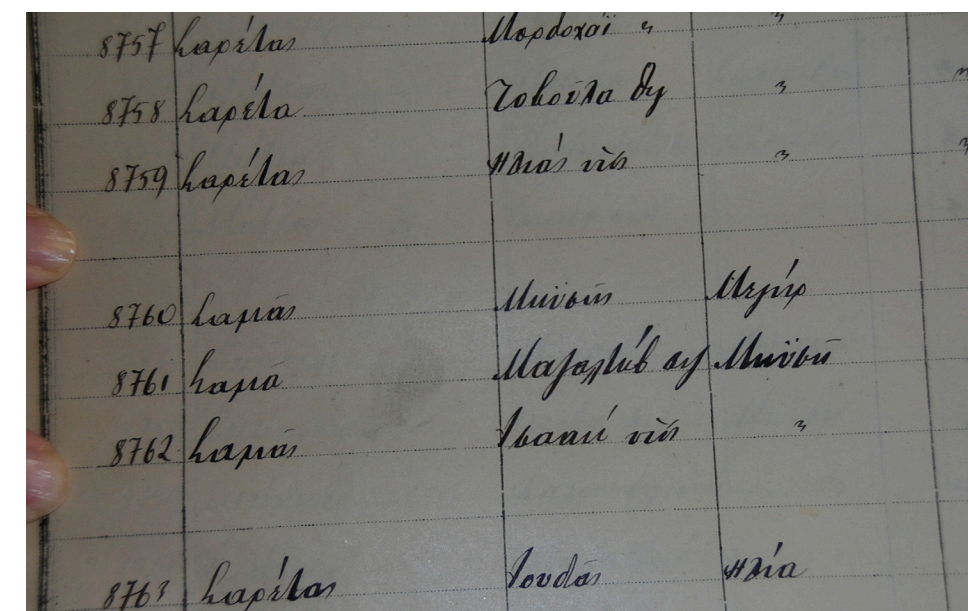 8757 Σαρέτας Μορδοχαϊ " "
8758 Σαρέτα Τοβούλα θυγ " "
8759 Σαρέτας Ηλιάς υιὸς " "
8760 Σαμάς Μωϋσῆς Μεγήρ
8761 Σαμᾶ Μαζαλτώβ συζ Μωϋσῆ
8762 Σαμάς Ισαακ υιὸς "
8763 Σαρέτας Ιούδας Ηλία